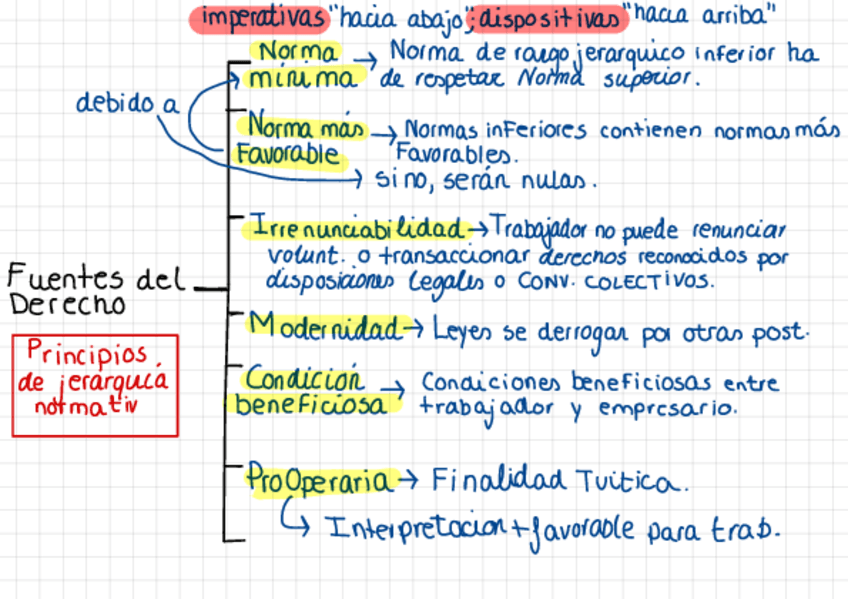 imperativas "hacia abajo"; dispositivas "hacia arriba"
Norma → Norma de rango jerarquico inferior ha
mínima de respetar Norma superior.
debido a
Norma más → Normas inferiores contienen normas más
Favorable Favorables.
→ sino, serán nulas.
Irrenunciabilidad → Trabajador no puede renunciar
volunt. o transaccionar derechos reconocidos por
disposiciones legales o CONV. COLECTIVOS.
Fuentes del
Derecho
Modernidad → Leyes se derrogan por otras post.
Principios
de jerarquica
normativ
Condición → Condiciones beneficiosas entre
beneficiosa trabajador y empresario.
ProOperaria → Finalidad Tuitica.
↳ Interpretacion + favorable para trab.